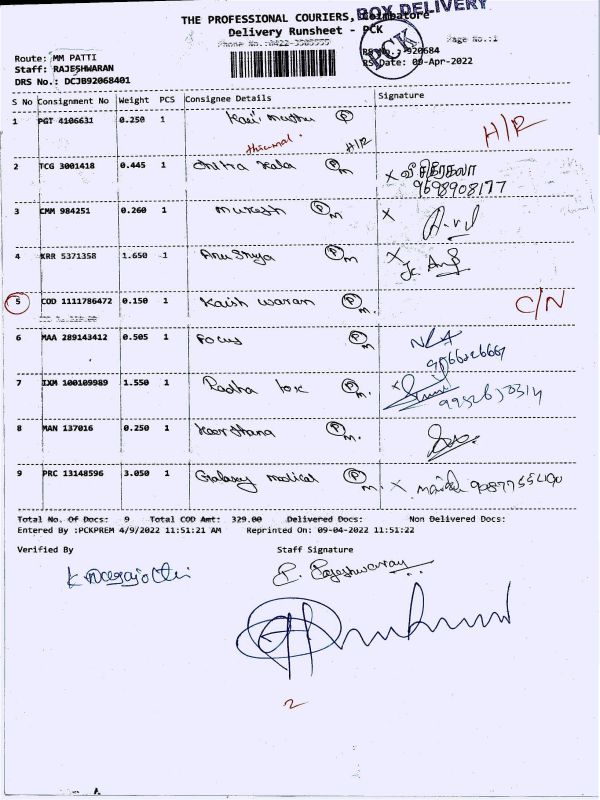 BOX DELIVERY
THE PROFESSIONAL COURIERS, Coimbatore
Delivery Runsheet - PCK
Page No.:1
PCK
Route: MM PATTI
Staff: RAJESHWARAN
DRS No.: DCJB92068401
RS No.: 920684
RS Date: 09-Apr-2022
S No Consignment No Weight PCS Consignee Details Signature
1 PGT 4106631 0.250 1 P H/R
thirumal. H/R
2 TCG 3001418 0.445 1 chitra kala P M X
9698908177
3 CMM 984251 0.260 1 mukesh P M X
4 KRR 5371358 1.650 1 Anu Shya P M X
5 COD 1111786472 0.150 1 Kaish waran P M. C/N
6 MAA 289143412 0.505 1 Focus P M
7 IXM 100109989 1.550 1 Radha P M. X
8 MAN 137016 0.250 1 P M.
9 PRC 13148596 3.050 1 Galaxy medical P M. X
Total No. Of Docs: 9 Total COD Amt: 329.00 Delivered Docs: Non Delivered Docs:
Entered By :PCKPREM 4/9/2022 11:51:21 AM Reprinted On: 09-04-2022 11:51:22
Verified By Staff Signature
P. Rajeshwaran
2